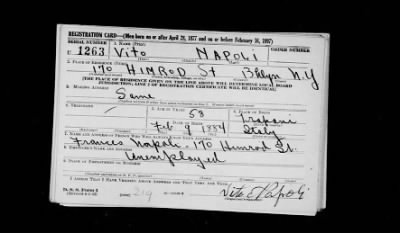 REGISTRATION CARD—(Men born on or after April 28, 1877 and on or before February 16, 1897)
SERIAL NUMBER 1. NAME (Print) ORDER NUMBER
U 1263 VITO NAPOLI
2. PLACE OF RESIDENCE (Print)
170 HIMROD St Bklyn N.Y
[THE PLACE OF RESIDENCE GIVEN ON THE LINE ABOVE WILL DETERMINE LOCAL BOARD
JURISDICTION; LINE 2 OF REGISTRATION CERTIFICATE WILL BE IDENTICAL]
3. MAILING ADDRESS
Same
4. TELEPHONE 5. AGE IN YEARS 6. PLACE OF BIRTH
58 Trapani
DATE OF BIRTH
Feb 9 1884 Italy
7. NAME AND ADDRESS OF PERSON WHO WILL ALWAYS KNOW YOUR ADDRESS
Frances Napoli - 170 Himrod St.
8. EMPLOYER'S NAME AND ADDRESS
Unemployed
9. PLACE OF EMPLOYMENT OR BUSINESS
I AFFIRM THAT I HAVE VERIFIED ABOVE ANSWERS AND THAT THEY ARE TRUE.
D. S. S. Form 1
219
Vito Napoli